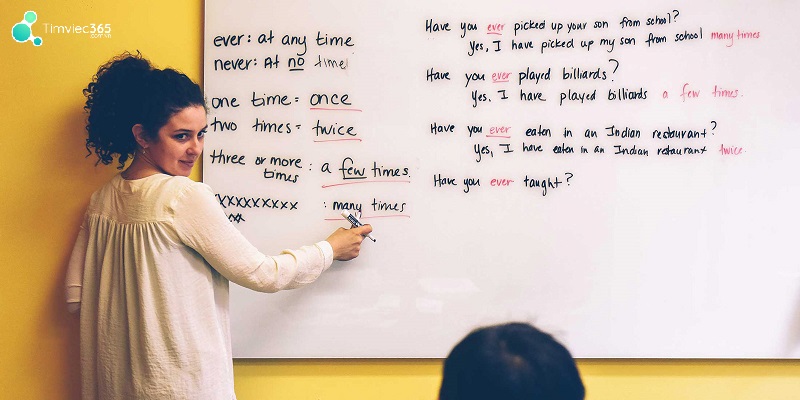 Timviec365
.com.vn
ever: at any time
never: At no time
one time = once
two times = twice
three or more
times : a few times.
xxxxxxxxx
xx : many times
Have you ever picked up your son from school?
Yes, I have picked up my son from school many times
Have you ever played billiards?
Yes, I have played billiards a few times.
Have you ever eaten in an Indian restaurant?
Yes, I have eaten in an Indian restaurant twice.
Have you ever taught?